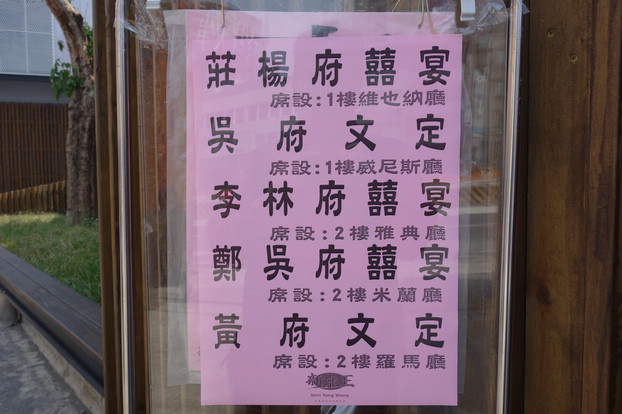 莊楊府囍宴
席設:1樓維也納廳
吳府文定
席設:1樓威尼斯廳
李林府囍宴
席設:2樓雅典廳
鄭吳府囍宴
席設:2樓米蘭廳
黃府文定
席設:2樓羅馬廳